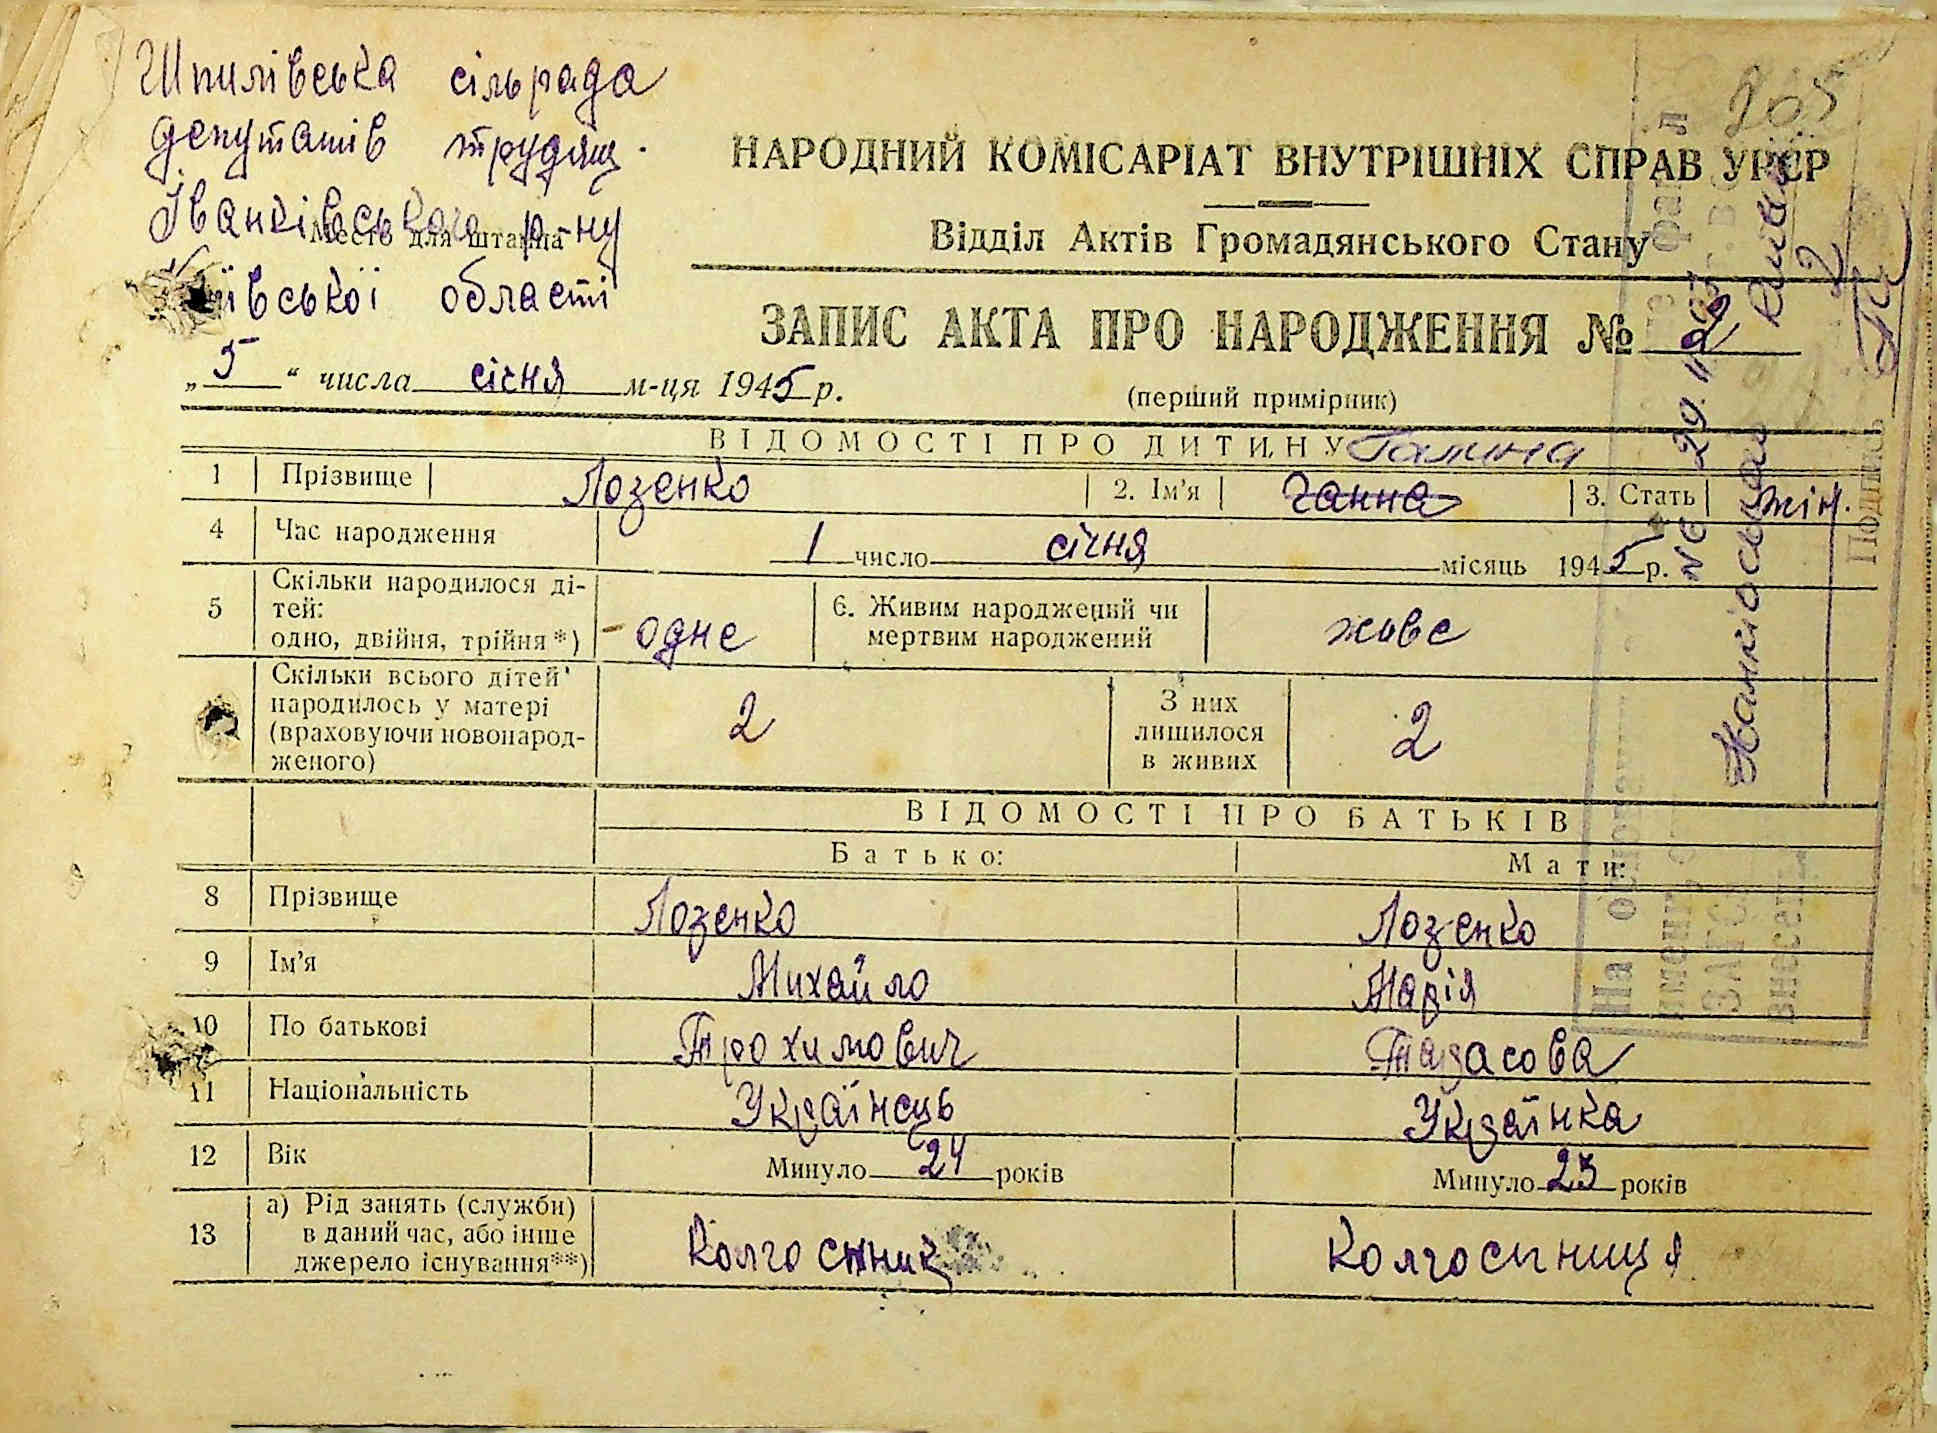 Шпилівська сільрада
депутатів трудящ.
Іванківського р-ну
Київської області
Место для штампа
205
НАРОДНИЙ КОМІСАРІАТ ВНУТРІШНІХ СПРАВ УРСР
Відділ Актів Громадянського Стану
ЗАПИС АКТА ПРО НАРОДЖЕННЯ № 2
„5“ числа січня м-ця 1945 р.
(перший примірник)
ВІДОМОСТІ ПРО ДИТИНУ Галина
1 Прізвище Лозенко 2. Ім'я Ганна 3. Стать жін.
4 Час народження 1 число січня місяць 1945 р.
5 Скільки народилося ді-
тей:
одно, двійня, трійня*) - одне
6. Живим народжений чи
мертвим народжений живе
Скільки всього дітей
народилось у матері
(враховуючи новонарод-
женого) 2
З них
лишилося
в живих 2
ВІДОМОСТІ ПРО БАТЬКІВ
Батько: Мати:
8 Прізвище Лозенко Лозенко
9 Ім'я Михайло Марія
10 По батькові Трохимович Тарасова
11 Національність Українець Українка
12 Вік Минуло 24 років Минуло 23 років
13 а) Рід занять (служби)
в даний час, або інше
джерело існування**) Колгоспник Колгоспниця
На
ЗАГС
внесен
Подпись